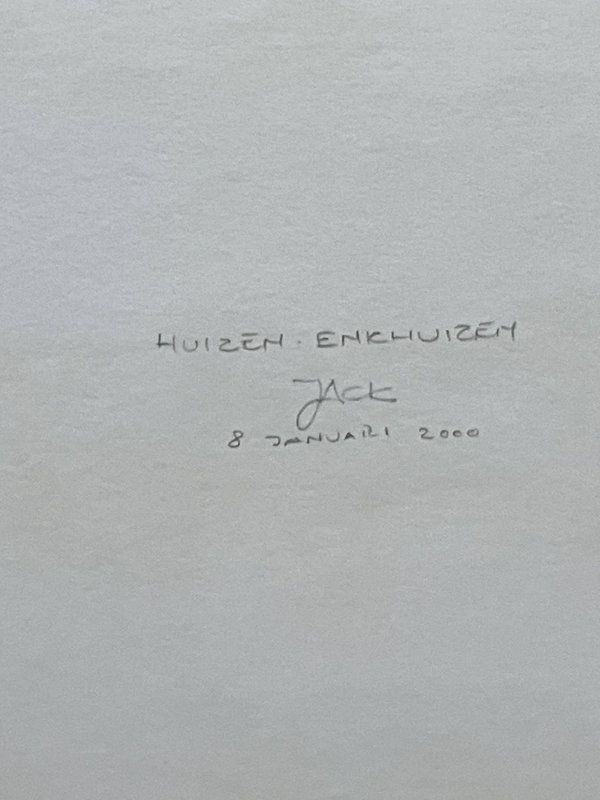 HUIZEN. ENKHUIZEN
JACK
8 JANUARI 2000